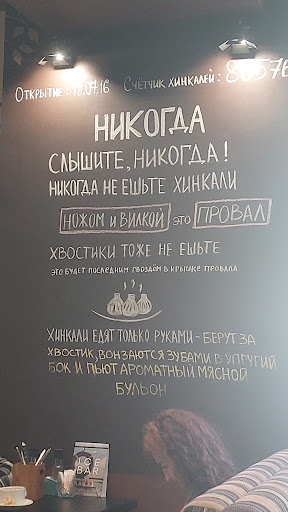 Открытие: 18.07.16 Счётчик хинкалей: 80576
НИКОГДА
СЛЫШИТЕ, НИКОГДА!
НИКОГДА НЕ ЕШЬТЕ ХИНКАЛИ
НОЖОМ И ВИЛКОЙ ЭТО ПРОВАЛ
ХВОСТИКИ ТОЖЕ НЕ ЕШЬТЕ
ЭТО БУДЕТ ПОСЛЕДНИМ ГВОЗДЁМ В КРЫШКЕ ПРОВАЛА
ХИНКАЛИ ЕДЯТ ТОЛЬКО РУКАМИ - БЕРУТ ЗА
ХВОСТИК, ВОНЗАЮТСЯ ЗУБАМИ В УПРУГИЙ
БОК И ПЬЮТ АРОМАТНЫЙ МЯСНОЙ
БУЛЬОН
ICE
BAR